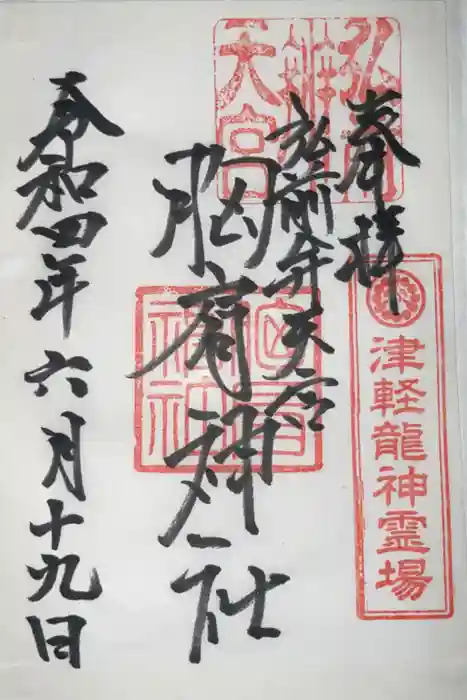 奉拝
津軽龍神霊場
弘前弁天宮
弘前辨天宮
胸肩神社
令和四年六月十九日